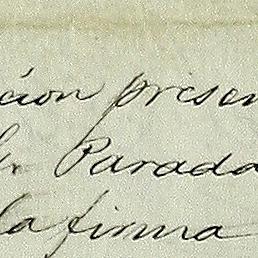 ación presen
Parada
la firma